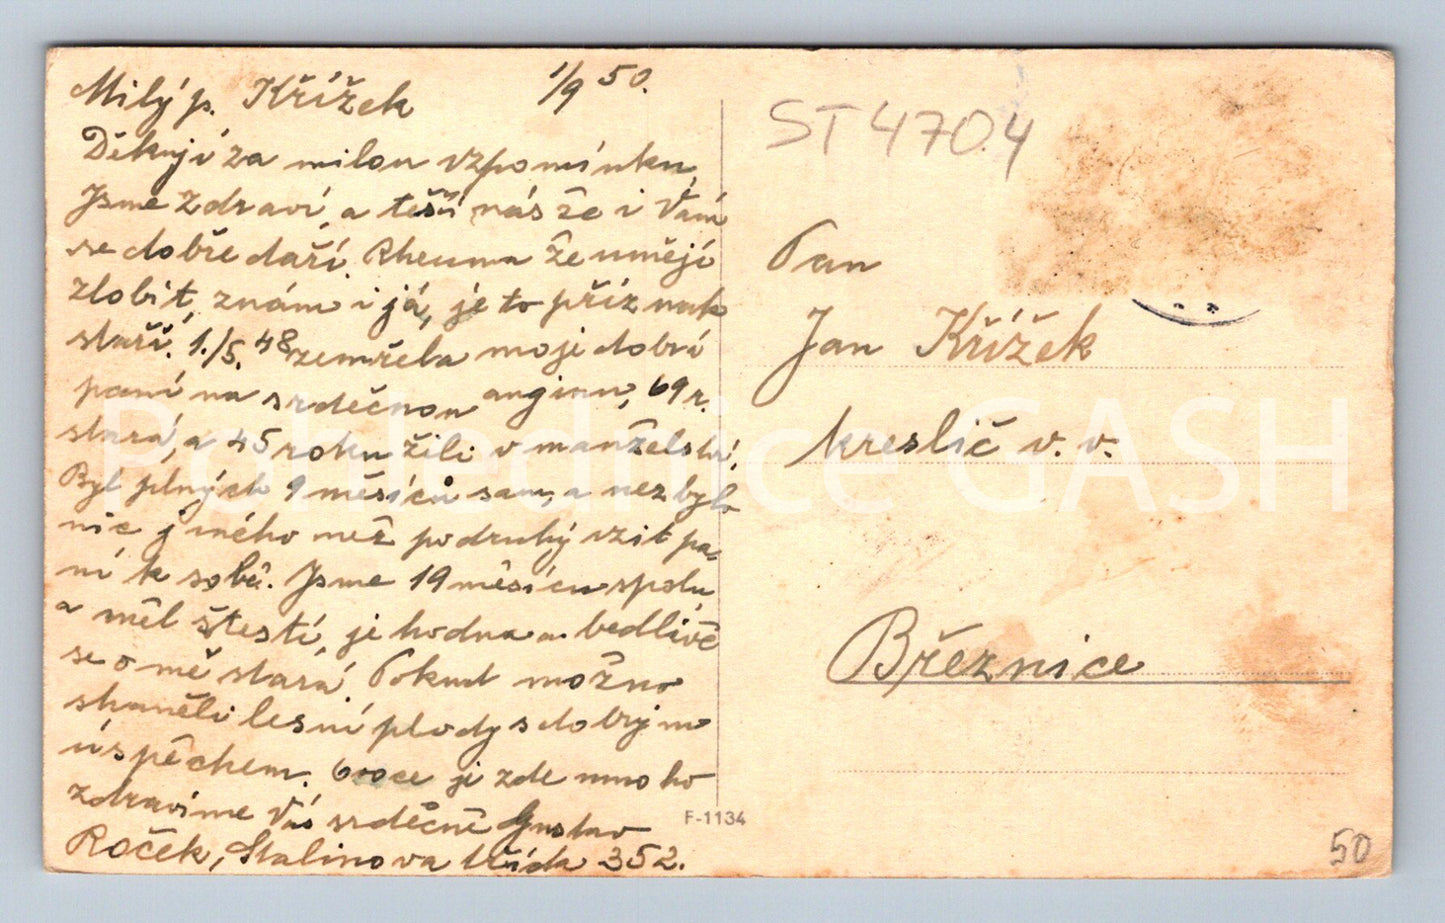 Milý p. Křížek 1/9 50.
Děkuji za milou vzpomínku,
Jsme zdraví, a těší nás že i Vám
se dobře daří. Rheuma že umějí
zlobit, znám i já, je to příznak
staří. 1./5. 48 zemřela moje dobrá
paní na srdečnou anginu, 69 r.
stará, a 45 roku žili v manželství.
Byl plných 9 měsíců sam, a nezbylo
nic jiného než podruhý vzit pa-
ní k sobě. Jsme 19 měsícu spolu
a měl štestí, je hodna a bedlivě
se o mě stará. Pokud možno
sháněli lesní plody s dobrým
úspěchem. Ovoce je zde mnoho
zdravíme Vás srdečně Gustav
Roček, Stalinova třída 352.
ST4704
Pan
Jan Křížek
kreslič v. v.
Březnice
F-1134
50
Pohlednice GASH